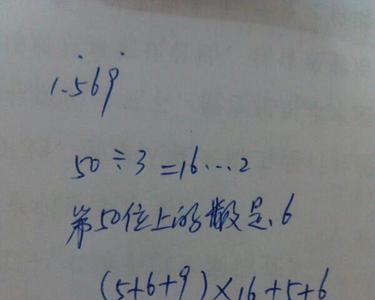 1.5̇69̇
50÷3=16…2
第50位上的数是6
(5+6+9)×16+5+6